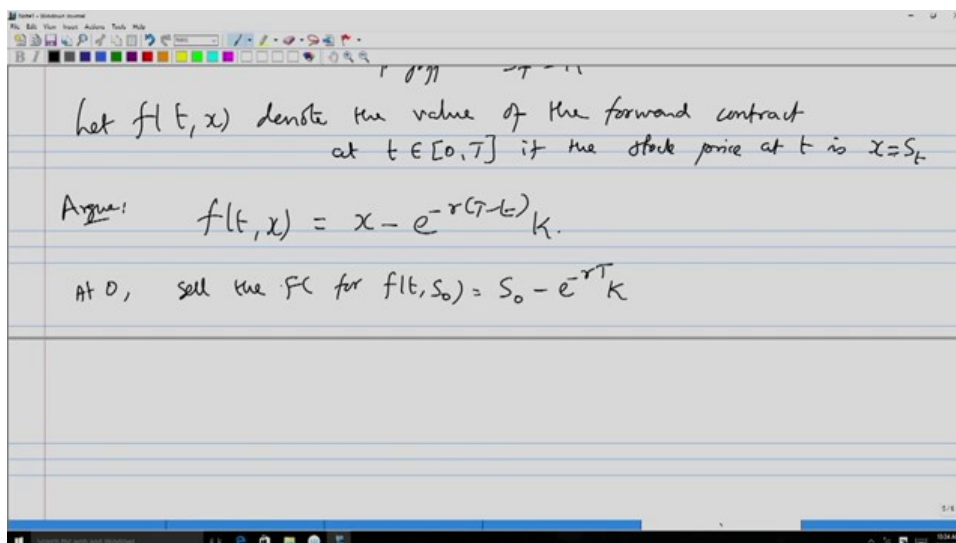 Note1 - Windows Journal
File Edit View Insert Actions Tools Help
B I
Let f(t, x) denote the value of the forward contract
at t ∈ [0, T] if the stock price at t is x = S_t
Argue:
f(t, x) = x - e^{-r(T-t)} K.
At 0, sell the FC for f(t, S_0) = S_0 - e^{-rT} K
5/6
10:34 AM